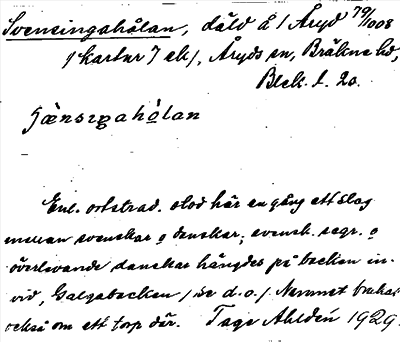 Svensingahålan, dåld å / Åryd 79/1008
/ kartur 7 ek/, Åryds sn, Bräkne hd,
Blek. l. 20.
Enl. ortstrad. stod här en gång ett slag
mellan svenskar o danskar; svensk. segr. o
överlevande danskar hängdes på backen in-
vid, Galgabacken / se d.o./ Namnet brukas
också om ett torp där. Tage Ahldén 1929.